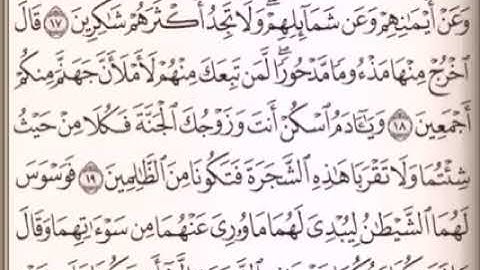 وَعَنْ أَيْمَٰنِهِمْ وَعَن شَمَآئِلِهِمْ ۖ وَلَا تَجِدُ أَكْثَرَهُمْ شَٰكِرِينَ ١٧ قَالَ
ٱخْرُجْ مِنْهَا مَذْءُومًا مَّدْحُورًا ۖ لَّمَن تَبِعَكَ مِنْهُمْ لَأَمْلَأَنَّ جَهَنَّمَ مِنكُمْ
أَجْمَعِينَ ١٨ وَيَٰٓـَٔادَمُ ٱسْكُنْ أَنتَ وَزَوْجُكَ ٱلْجَنَّةَ فَكُلَا مِنْ حَيْثُ
شِئْتُمَا وَلَا تَقْرَبَا هَٰذِهِ ٱلشَّجَرَةَ فَتَكُونَا مِنَ ٱلظَّٰلِمِينَ ١٩ فَوَسْوَسَ
لَهُمَا ٱلشَّيْطَٰنُ لِيُبْدِىَ لَهُمَا مَا وُۥرِىَ عَنْهُمَا مِن سَوْءَٰتِهِمَا وَقَالَ